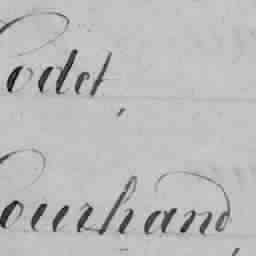 Codet,
Courhand,